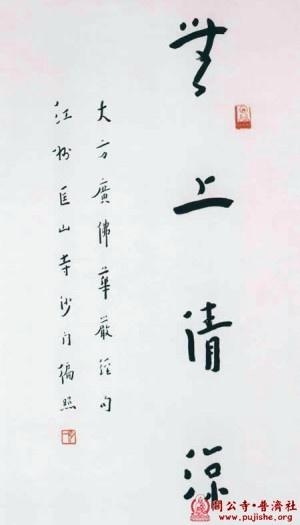 無上清涼
大方廣佛華嚴經句
江州匡山寺沙門徧照
關公寺·普濟社
www.pujishe.org